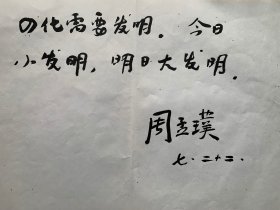 四化需要发明。今日
小发明,明日大发明。
周孟璞
七.二十二.